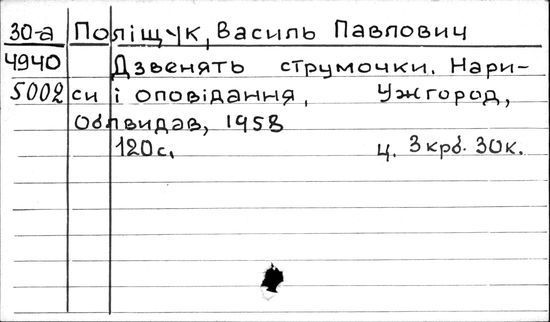 30-а Поліщук, Василь Павлович
4940 Дзвенять струмочки. Нари-
5002 си і оповідання, Ужгород,
Облвидав, 1958
120с. ц. 3 крб. 30к.